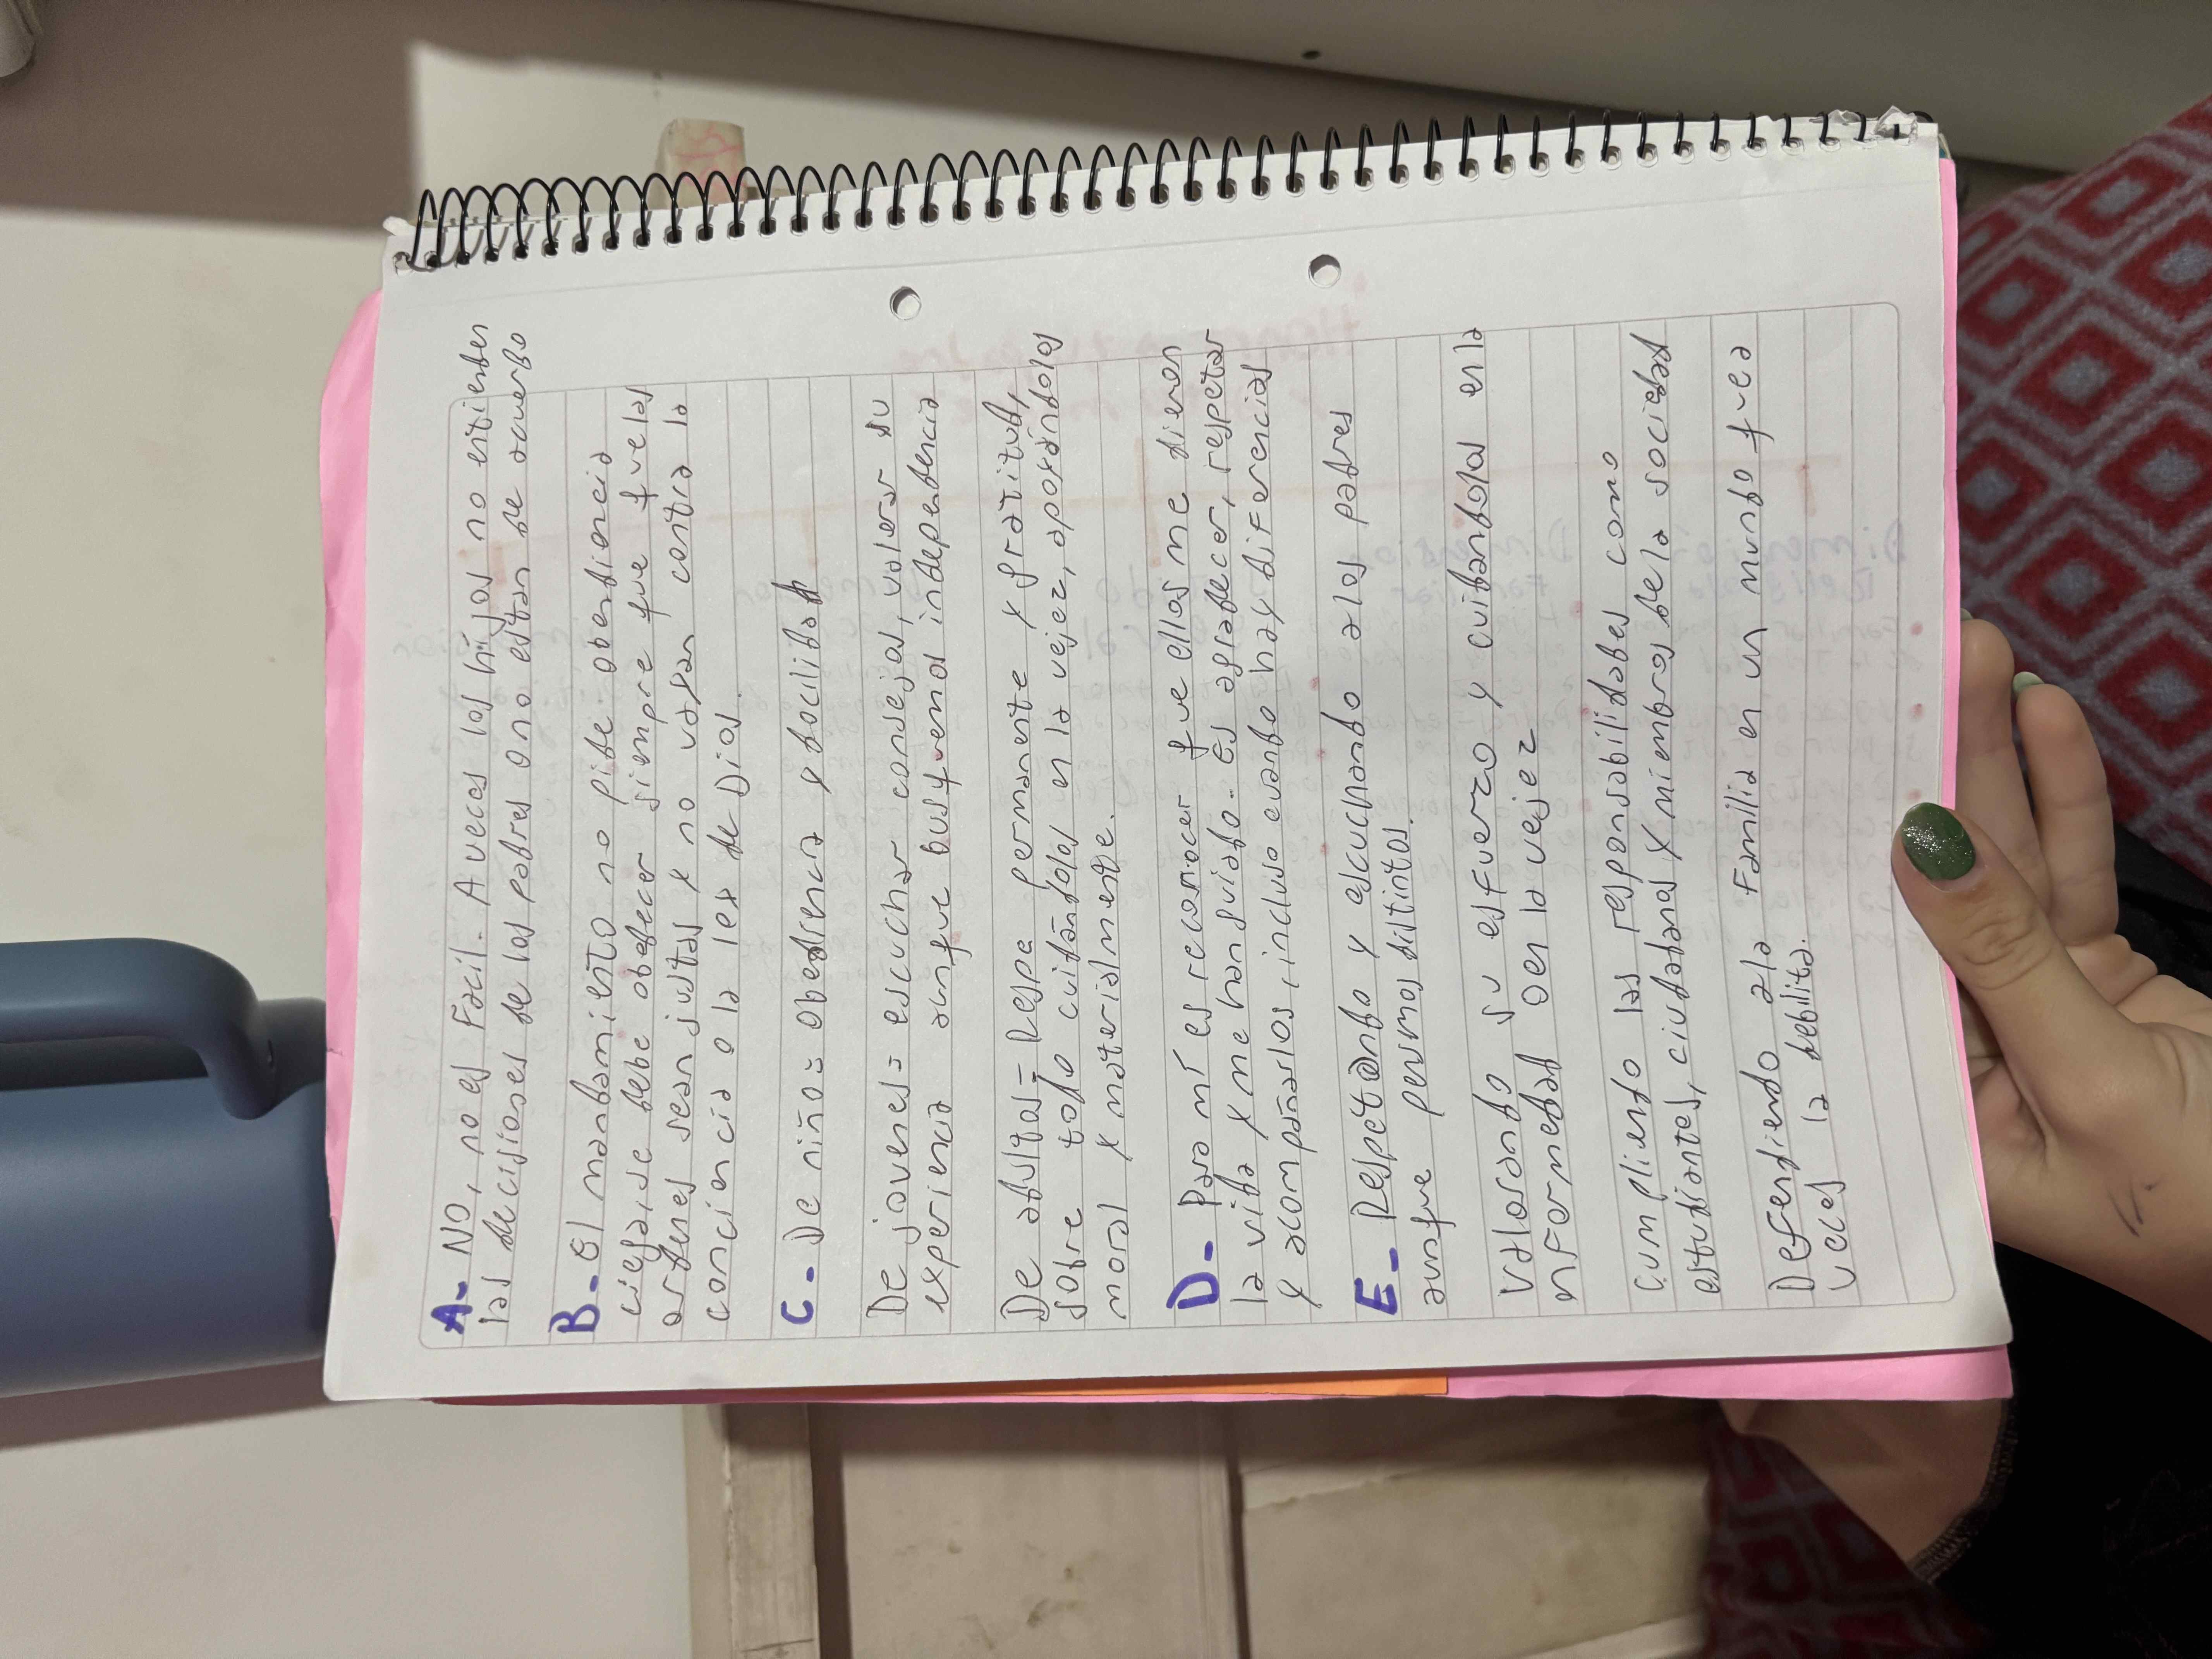 A- NO, no es Facil. A veces los hijos no entienden
las decisiones de los padres o no estan de acuerdo
B- El mandamiento no pide obendiencia
ciega, se debe obedecer siempre que que las
ordenes sean justas y no vayan contra la
conciencia o la ley de Dios.
C- De niño= obediencz y docilidad
De jovenes= escuchar consejos, valorar su
experiencia aunque busquemos independencia
De adultos= Respe permanente y gratitud,
sobre todo cuidándolos en la vejez, apoyándolos
moral y materialmente.
D- Para mí es reconocer que ellos me dieron
la vida y me han guiado. Es agradecer, respetar
y acompañarlos, incluso cuando hay diferencias
E- Respetando y escuchando a los padres
aunque pensmos distintos.
Valorando su esfuerzo y cuidandolos en la
enfermedad o en la vejez
Cumpliendo las responsabilidades como
estudiantes, ciudadanos y miembros de la sociedad
Defendiendo a la Familia en un mundo que a
veces la debilita.